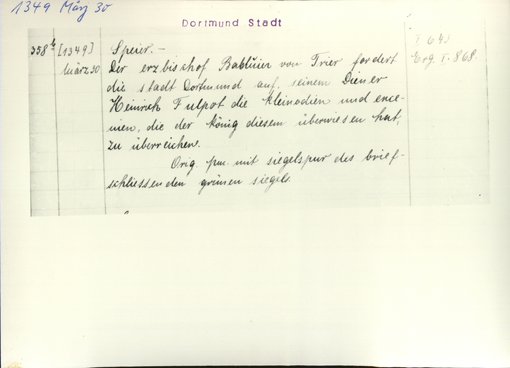 1349 März 30
Dortmund Stadt
358b [1349] Speier.–
März 30 Der erzbischof Balduin von Trier fordert
die stadt Dortmund auf, seinem Diener
Heinrich Fulpot die kleinodien und exce-
nien, die der könig diesem überwiesen hat,
zu überreichen.
Orig. pm. mit siegelspur des brief-
schliessenden grünen siegels.
643
Erg. I. 868.